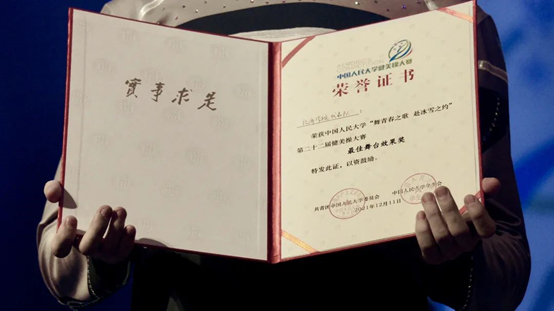 實事求是
中国人民大学健美操大赛
荣誉证书
荣获中国人民大学“舞青春之歌 赴冰雪之约”
第二十二届健美操大赛
最佳舞台效果奖
特发此证，以资鼓励。
共青团中国人民大学委员会
中国人民大学
2021年12月11日